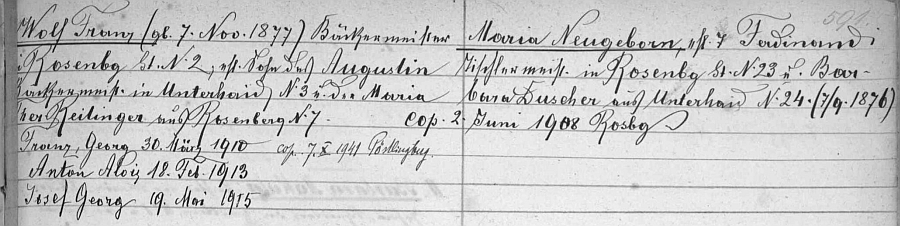 Wolf Franz (gb. 7. Nov. 1877) Bäckermeister
i Rosenbg St. N. 2, ehl. Sohn des Augustin
Bäckermeist. in Unterhaid N. 3 u. der Maria
Reitinger aus Rosenberg N. 7.
Franz, Georg 30. März 1910 cop. 7. X 1941 Pöstlingbg.
Anton Alois 18. Feb. 1913
Josef Georg 19. Mai 1915
591.
Maria Neugeborn, ehl. T Ferdinand
Tischlermeist. in Rosenbg St. N. 23 u. Bar-
bara Duscher aus Unterhaid N. 24. (7/9. 1876)
cop. 2. Juni 1908 Rosbg